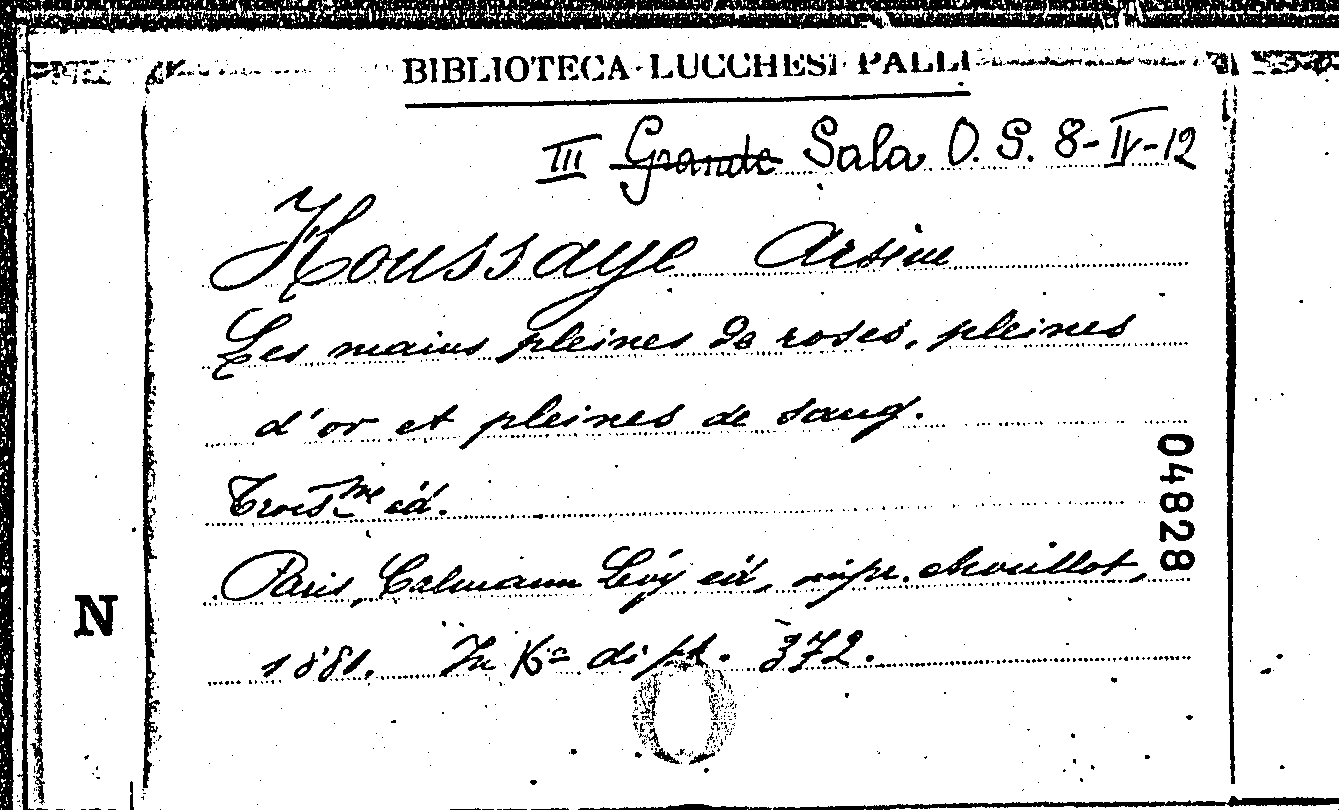 BIBLIOTECA · LUCCHESI · PALLI
III Grande Sala O. S. 8-IV-12
Houssaye Arsène
Les mains pleines de roses, pleines
d'or et pleines de sang.
Troisme éd.
Paris, Calmann Lévy éd, impr. Chouillot,
1881. In 16° di pp. 372.
04828
N